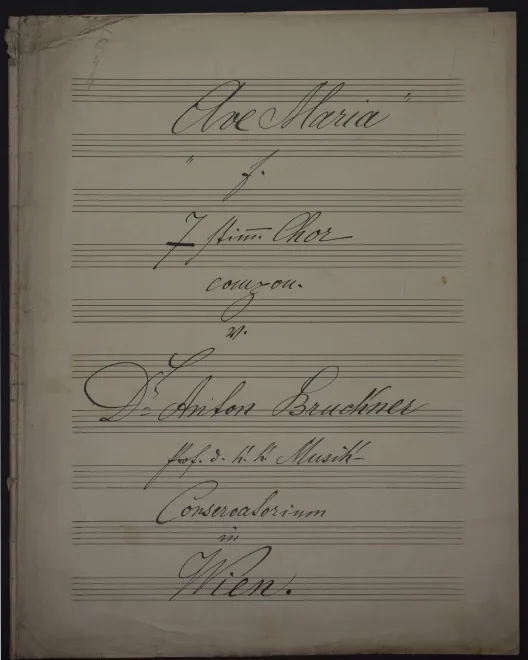 „Ave Maria"
f.
7 stimm. Chor
compon.
v.
Dr. Anton Bruckner
Prof. d. k. k. Musik-
Conservatorium
in
Wien.